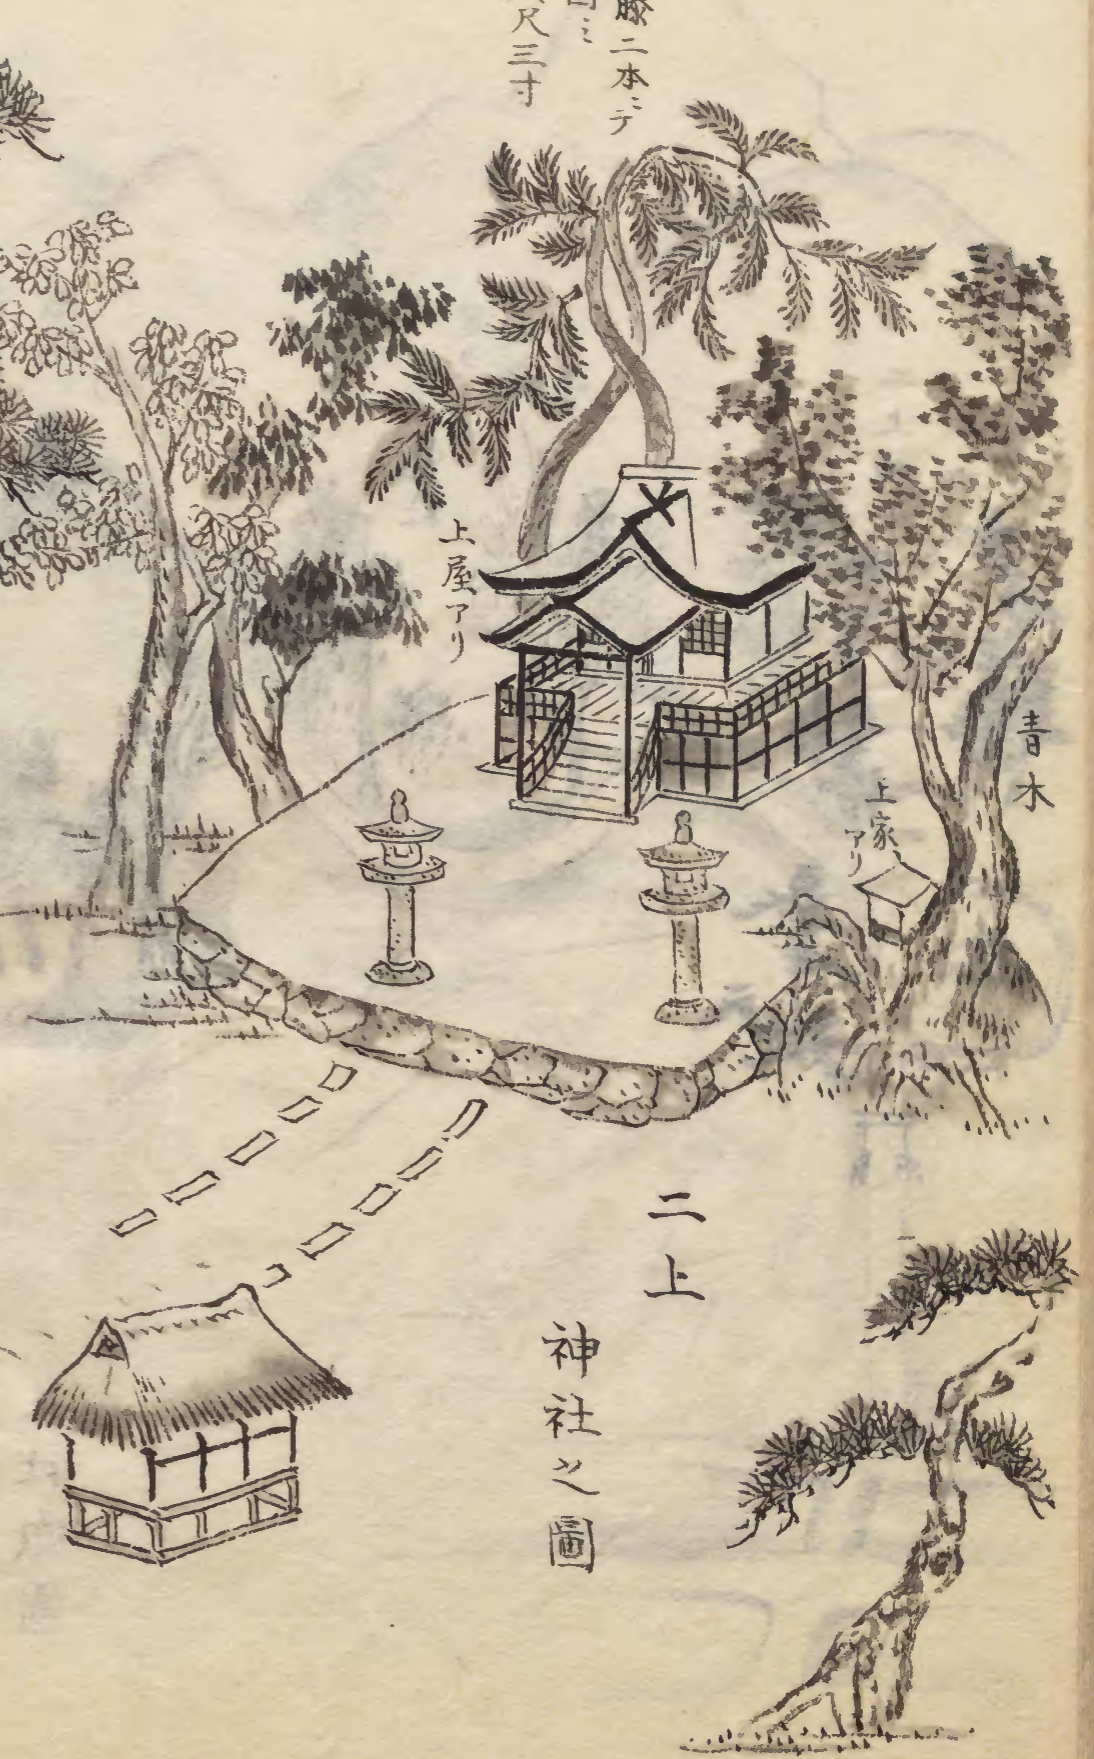 藤二本ニテ
尺三寸
上屋アリ
青木
上家
アリ
二上
神社之圖